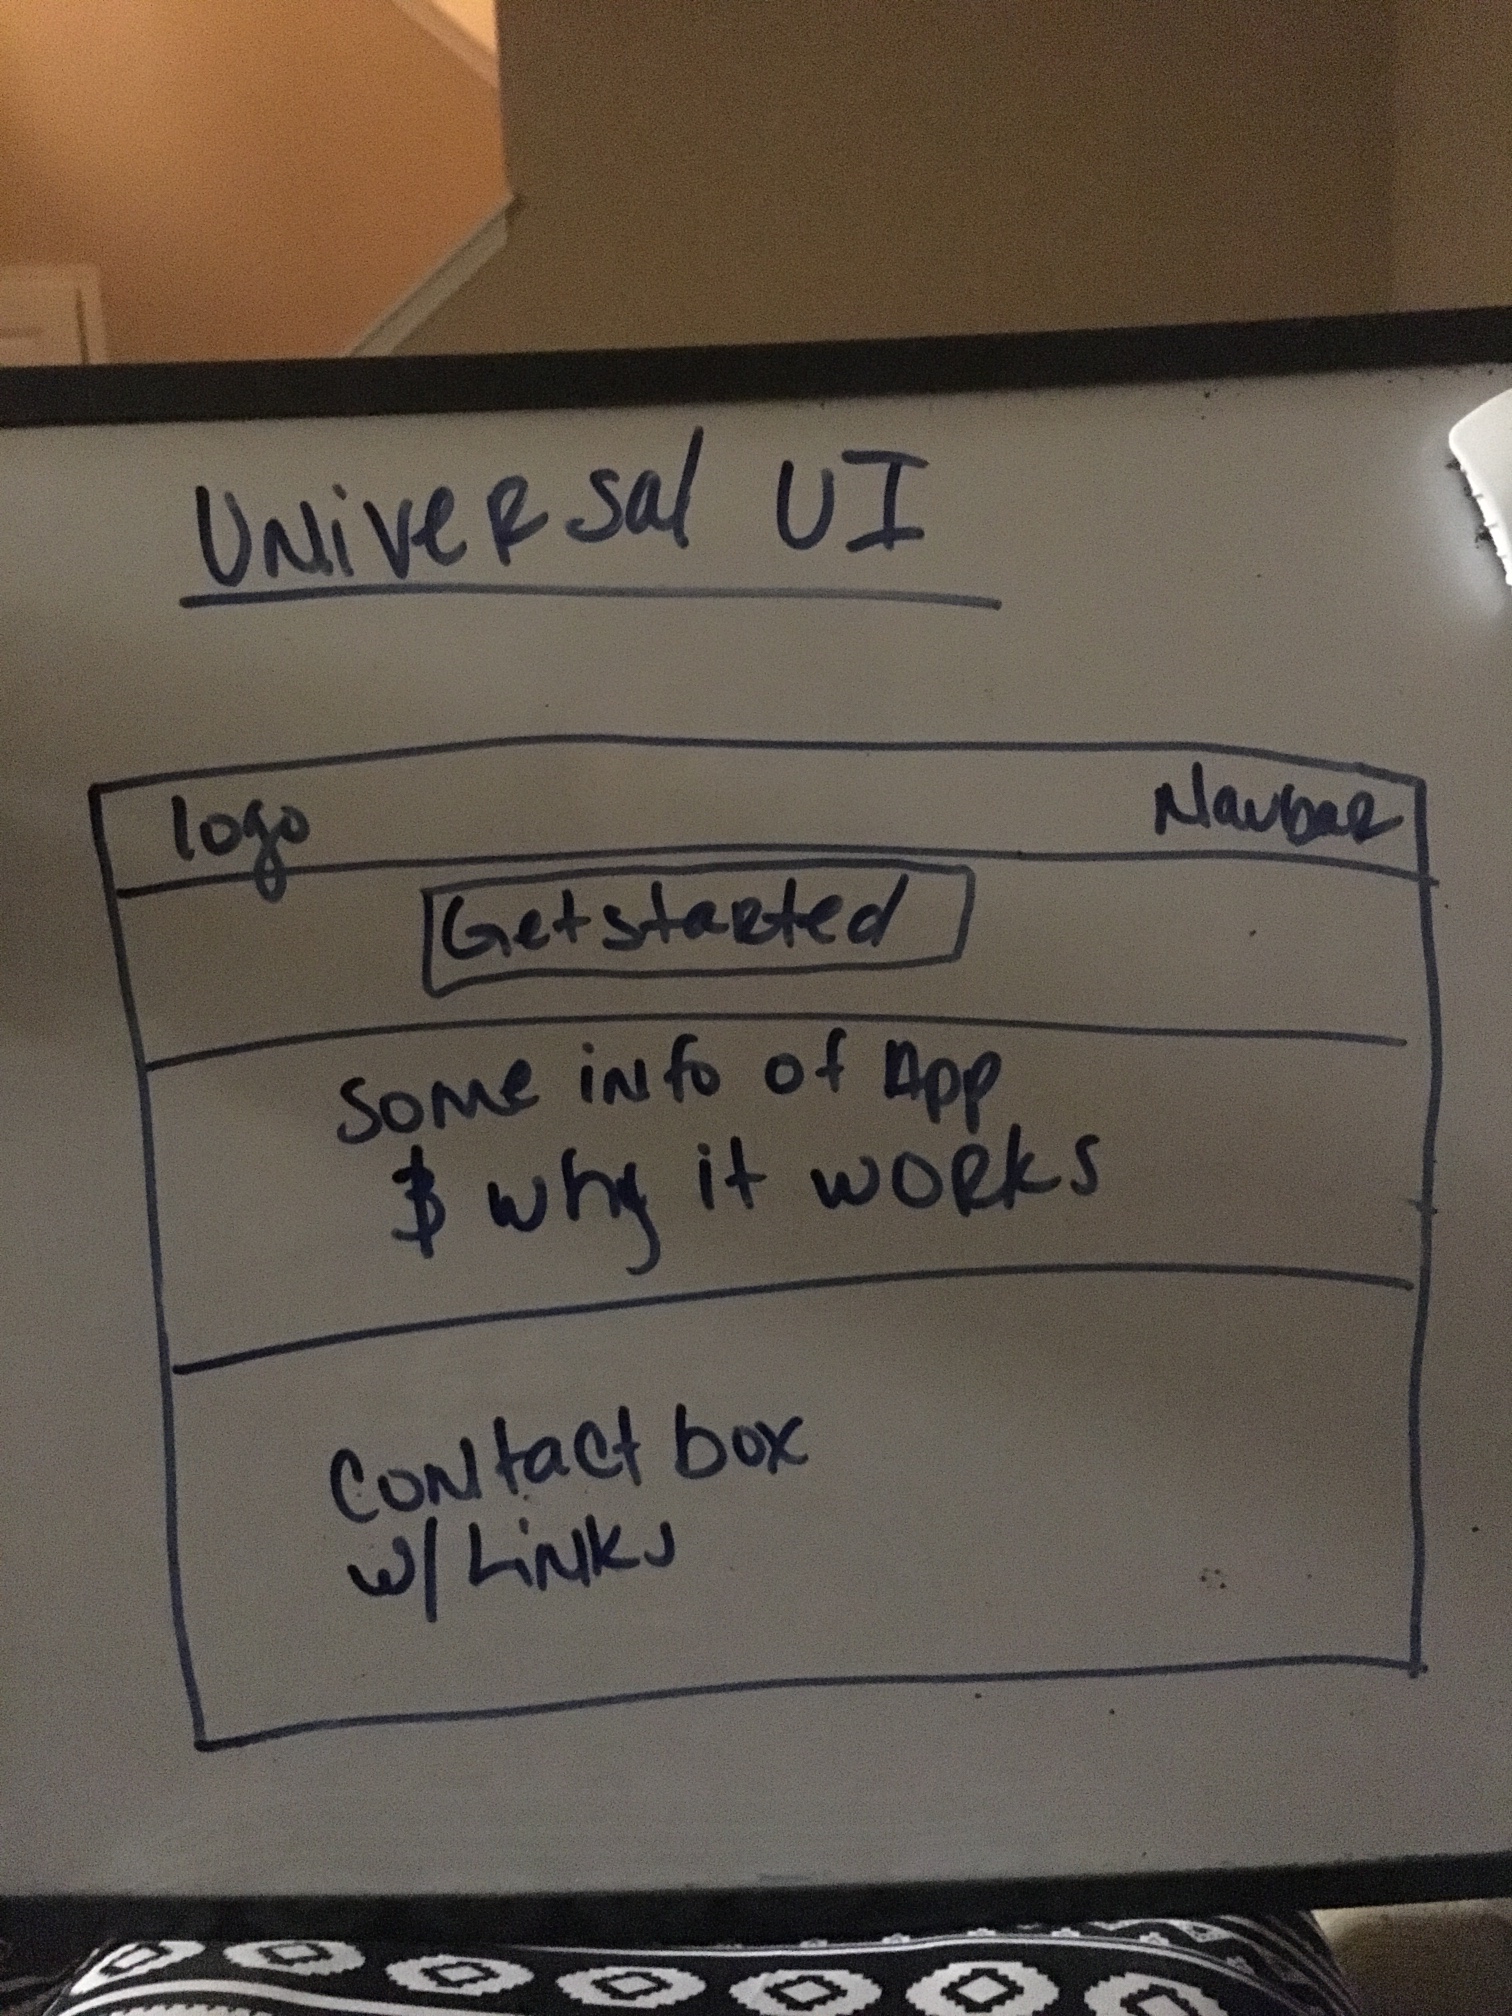 Universal UI
logo
Navbar
Get started
Some info of App
& why it works
Contact box
w/ Links